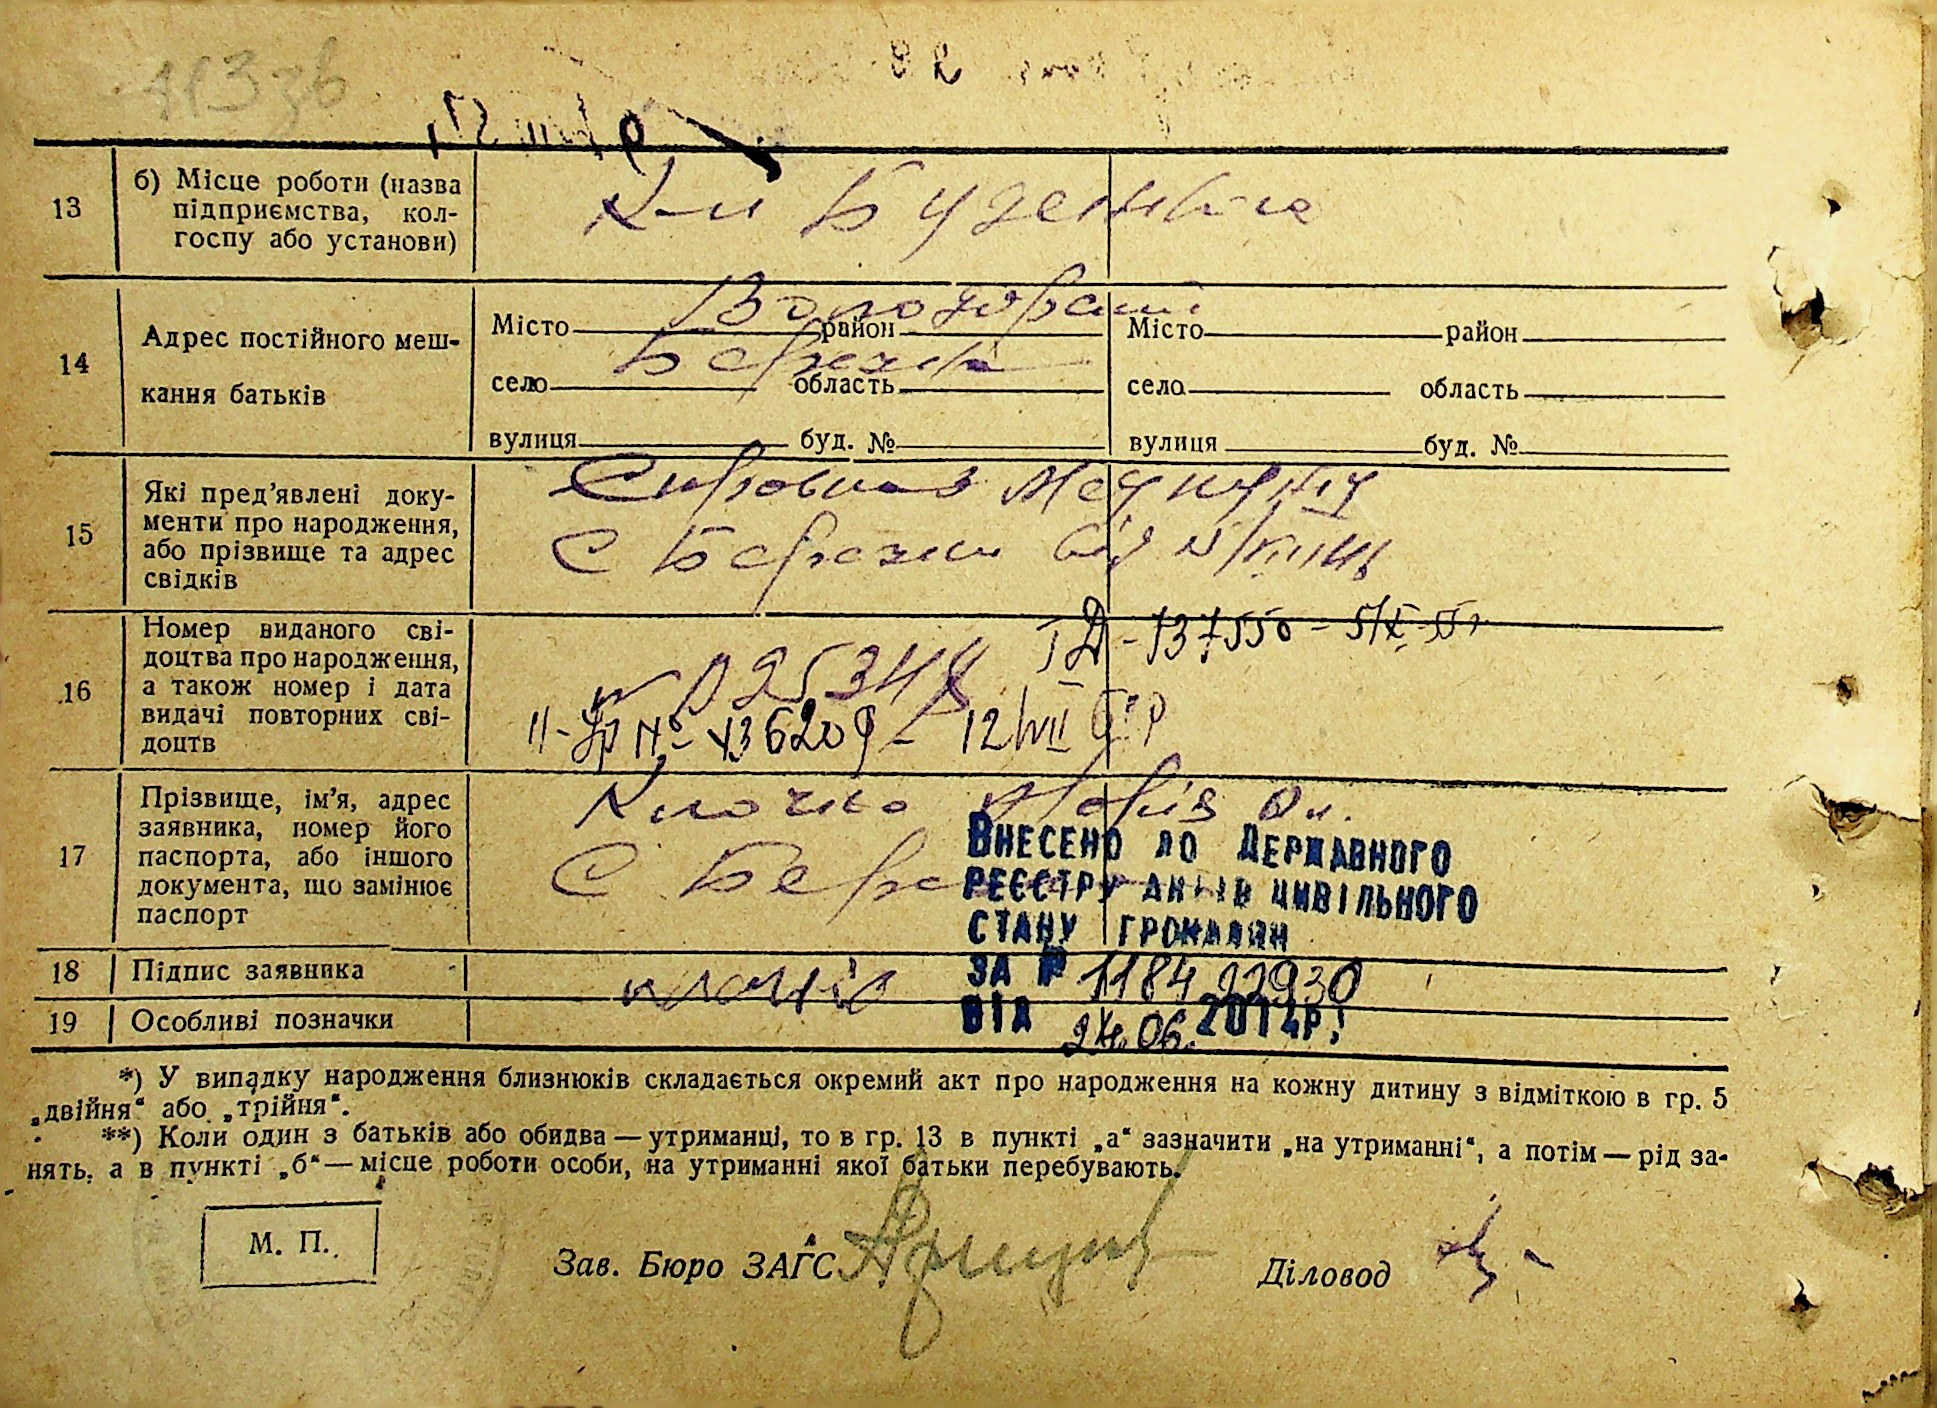 113 зв
13
б) Місце роботи (назва
підприємства, кол-
госпу або установи)
К-п Буденного
14
Адрес постійного меш-
кання батьків
Володарський
Місто район Місто район
Березна
село область село область
вулиця буд. № вулиця буд. №
15
Які пред’явлені доку-
менти про народження,
або прізвище та адрес
свідків
с Березни від
16
Номер виданого сві-
доцтва про народження,
а також номер і дата
видачі повторних сві-
доцтв
737550 - 5/X-55
№ 025348
№ 436209 - 12/VII
17
Прізвище, ім’я, адрес
заявника, номер його
паспорта, або іншого
документа, що замінює
паспорт
Клочко Марія
с Бере
Внесено до Державного
реєстру актів цивільного
стану громадян
за № 1184 22930
від 24.06. 2014р.
18
Підпис заявника
19
Особливі позначки
*) У випадку народження близнюків складається окремий акт про народження на кожну дитину з відміткою в гр. 5
„двійня“ або „трійня“.
**) Коли один з батьків або обидва — утриманці, то в гр. 13 в пункті „а“ зазначити „на утриманні“, а потім — рід за-
нять, а в пункті „б“ — місце роботи особи, на утриманні якої батьки перебувають.
М. П.
Зав. Бюро ЗАГС
Діловод